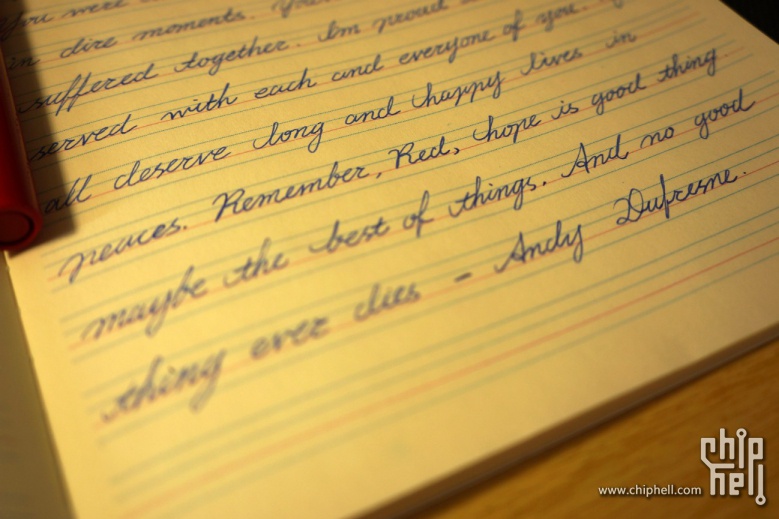 You were
in dire moments.
suffered together. Im proud
served with each and everyone of you.
all deserve long and happy lives in
peaces. Remember, Red, hope is good thing
maybe the best of things. And no good
thing ever dies - Andy Dufresne.
chip
hell
www.chiphell.com